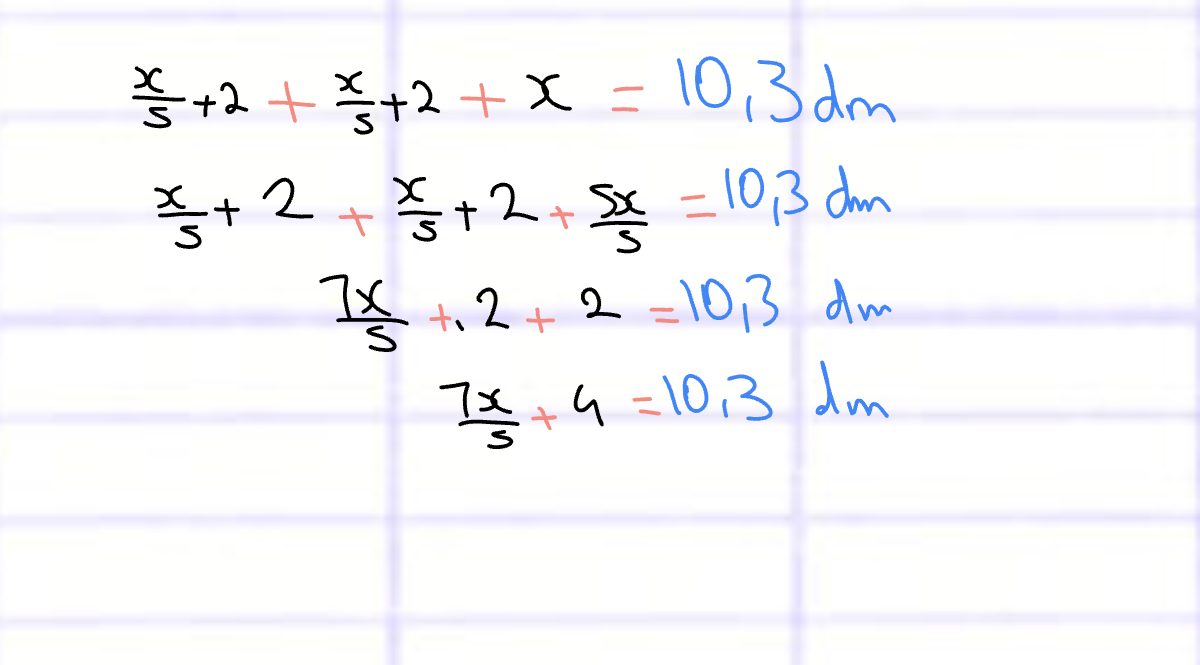 x/5 + 2 + x/5 + 2 + x = 10,3 dm
x/5 + 2 + x/5 + 2 + 5x/5 = 10,3 dm
7x/5 +. 2 + 2 = 10,3 dm
7x/5 + 4 = 10,3 dm